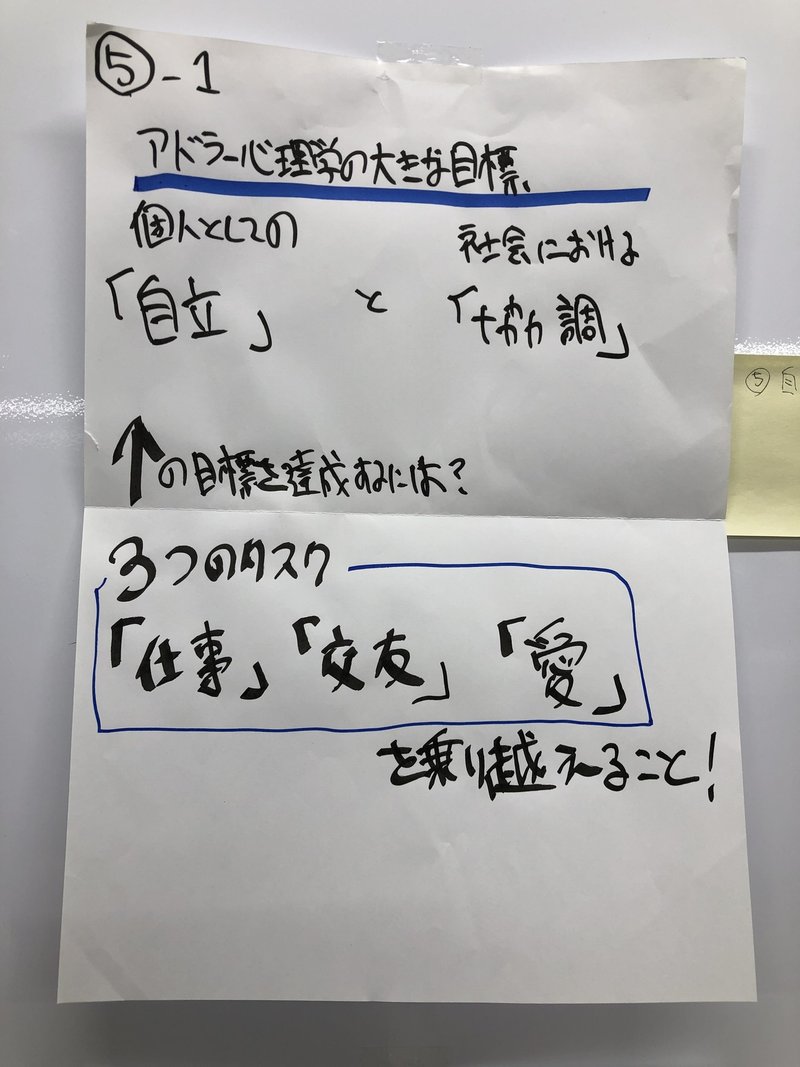 ⑤-1
アドラー心理学の大きな目標
個人としての 社会における
「自立」 と 「協調」
↑の目標を達成するには?
3つのタスク
「仕事」「交友」「愛」
を乗り越えること!
⑤ 自